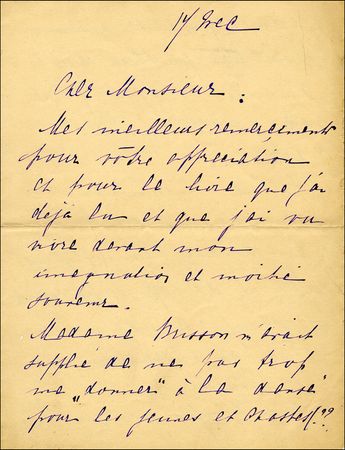 17 Dec
Cher Monsieur :
Mes meilleurs remerciements
pour vôtre appreciation
et pour le livre que j'ai
déjà lu et que j'ai vu
vivre devant mon
imagination et moitié
souvenir.
Madame Brisson m'avait
supplié de ne pas trop
me "donner" à la danse
pour les jeunes et